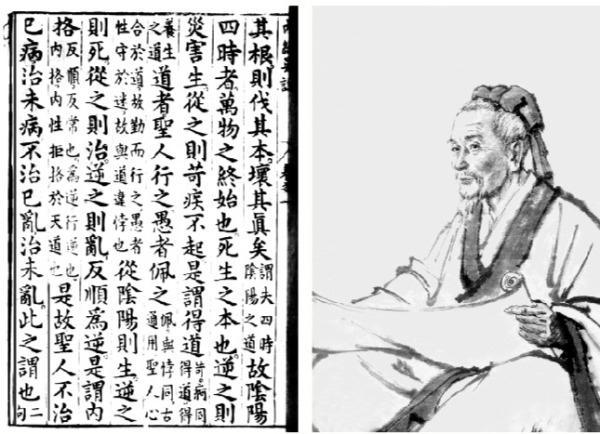 其根則伐其本壞其眞矣謂失四時陰陽之道故陰陽
四時者萬物之終始也死生之本也逆之則
災害生從之則苛疾不起是謂得道苛病同得道得
養生之道道者聖人行之愚者佩之佩與悖同古通用聖人心
合於道故勤而行之愚者性守於迷故與道違悖也從陰陽則生逆之
則死從之則治逆之則亂反順爲逆是謂內
格反順反常也爲逆行逆也內格內性拒格於天道也是故聖人不治
已病治未病不治已亂治未亂此之謂也二句